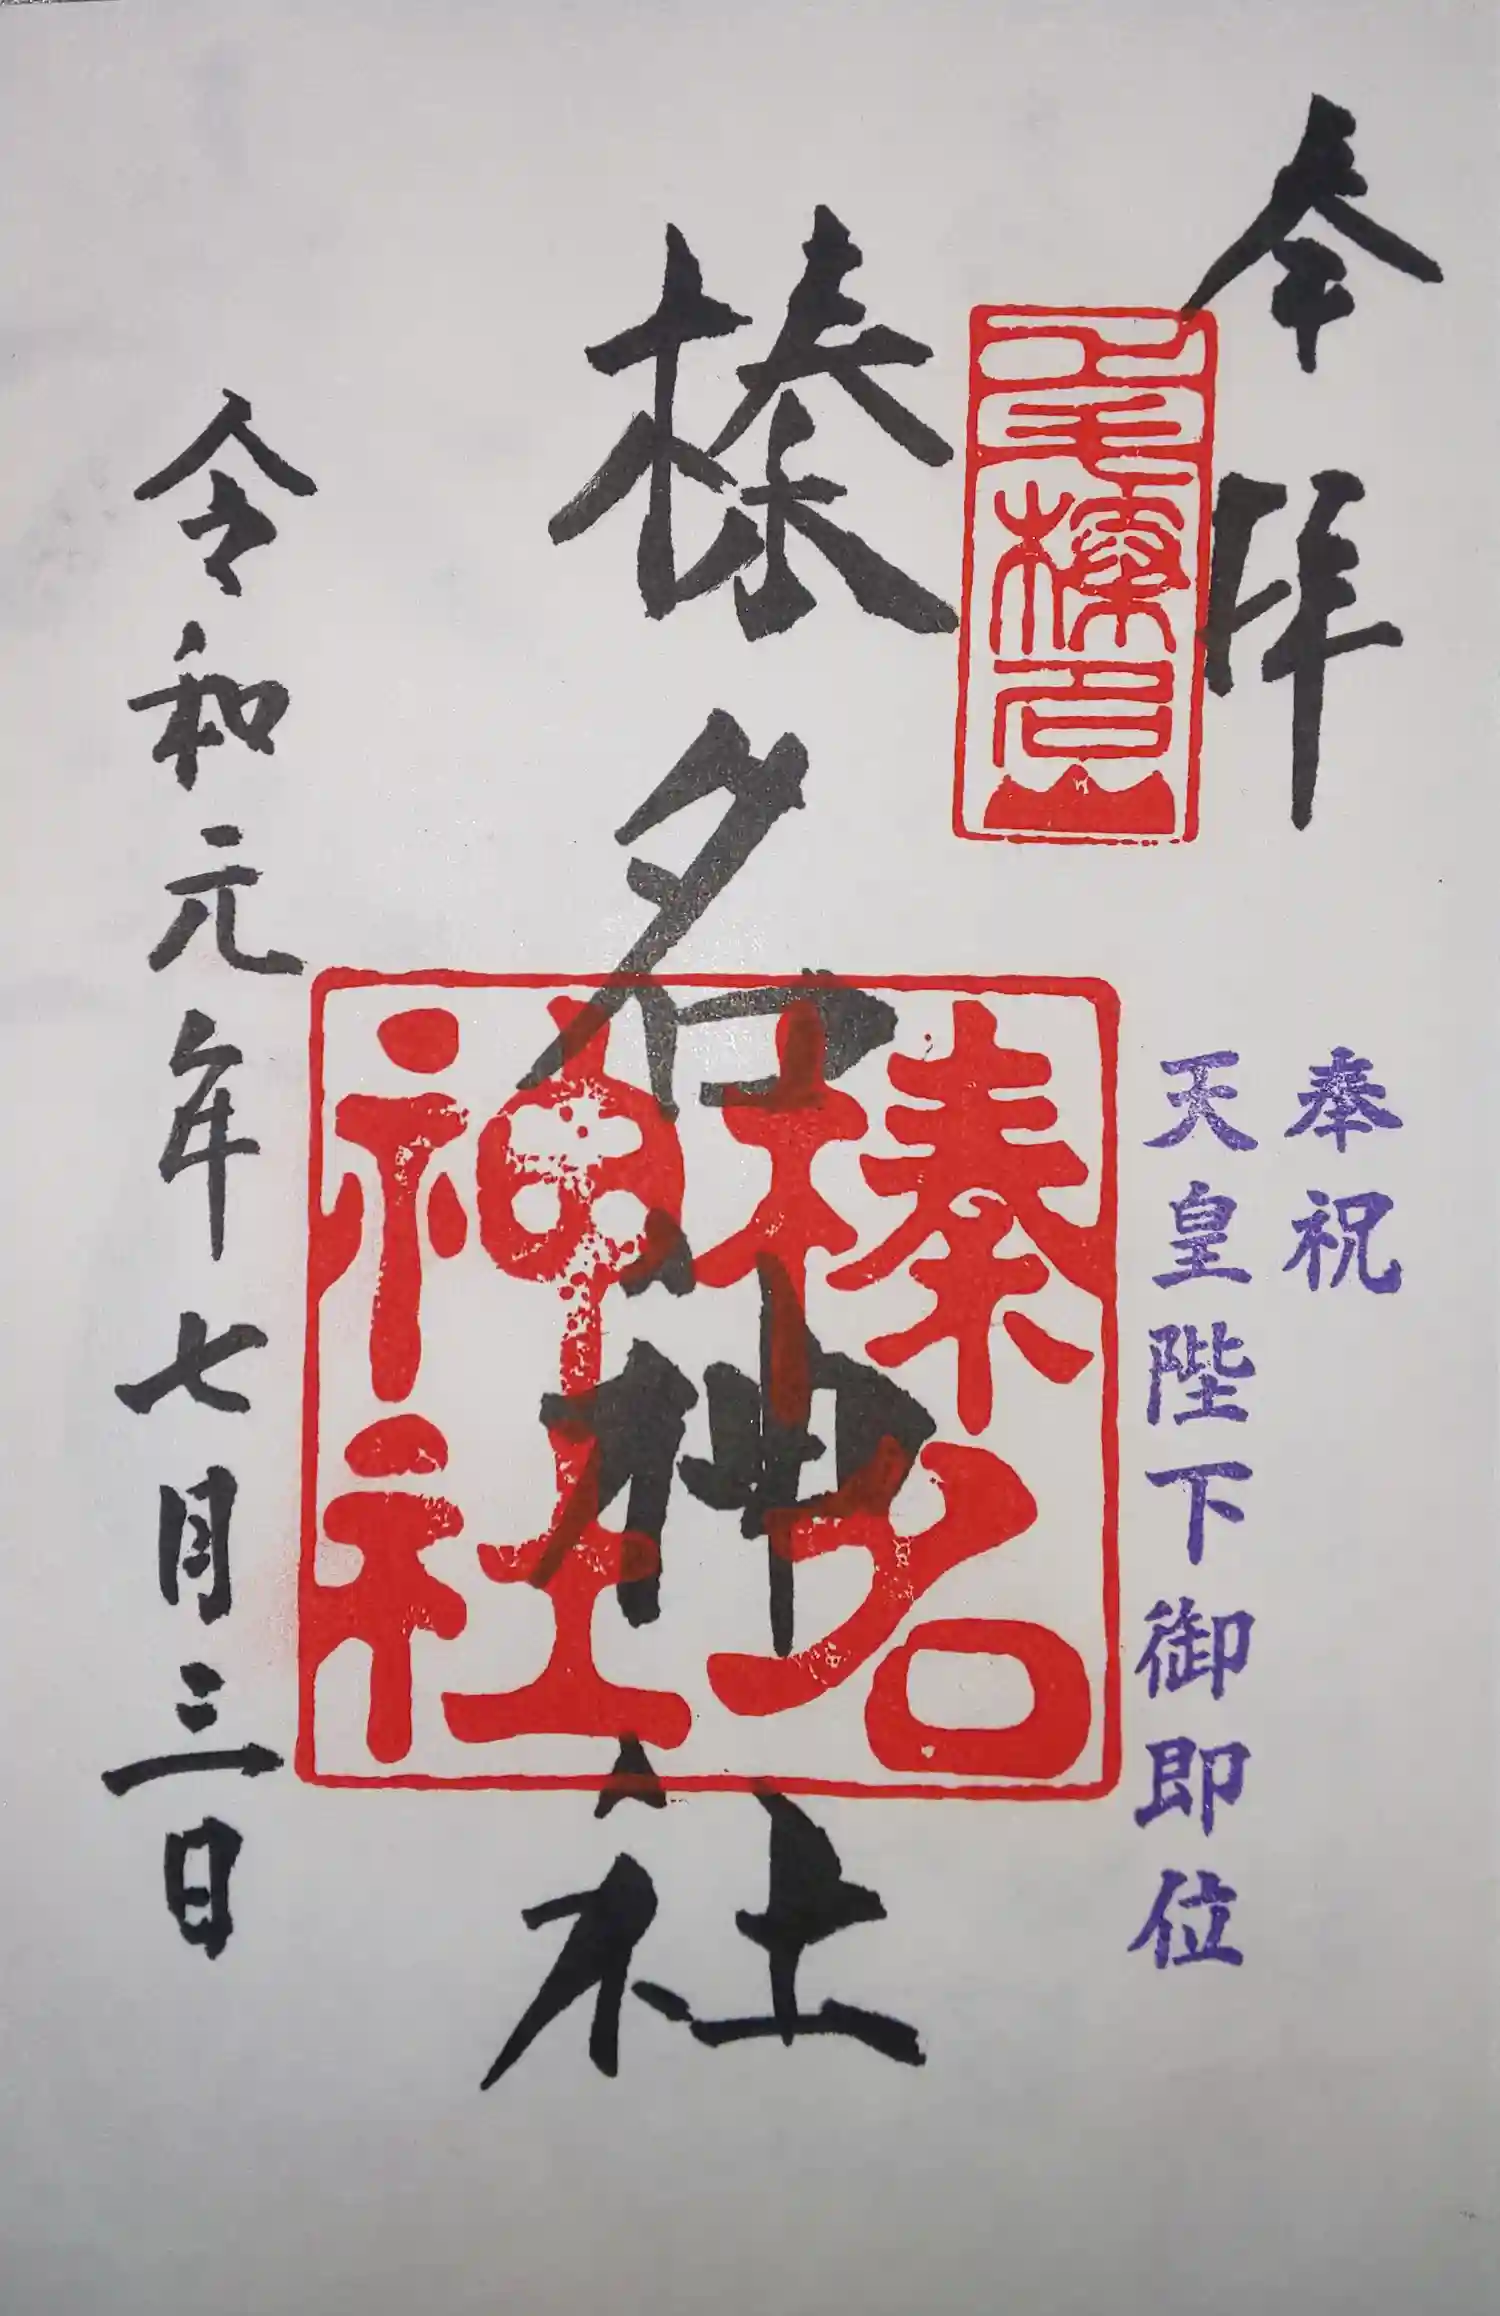 奉拝
奉祝
天皇陛下御即位
上毛榛名山
榛名神社
榛名
神社
令和元年七月三日